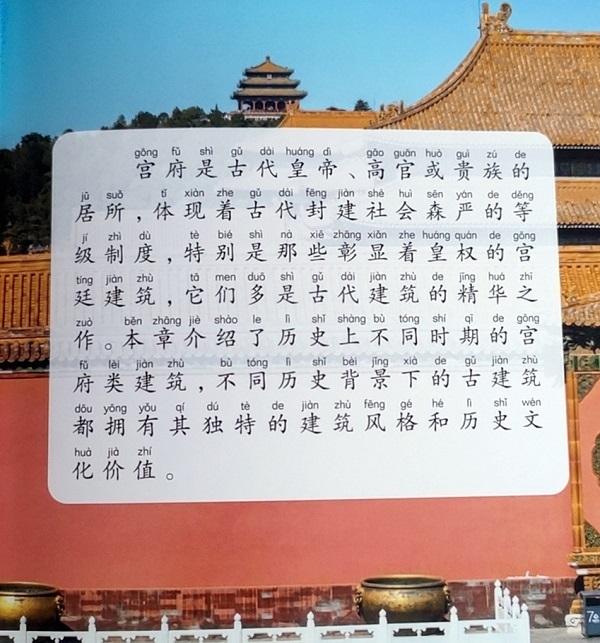 gōng fǔ shì gǔ dài huáng dì gāo guān huò guì zú de
宫府是古代皇帝、高官或贵族的
jū suǒ tǐ xiàn zhe gǔ dài fēng jiàn shè huì sēn yán de děng
居所，体现着古代封建社会森严的等
jí zhì dù tè bié shì nà xiē zhāng xiǎn zhe huáng quán de gōng
级制度，特别是那些彰显着皇权的宫
tíng jiàn zhù tā men duō shì gǔ dài jiàn zhù de jīng huá zhī
廷建筑，它们多是古代建筑的精华之
zuò běn zhāng jiè shào le lì shǐ shàng bù tóng shí qī de gōng
作。本章介绍了历史上不同时期的宫
fǔ lèi jiàn zhù bù tóng lì shǐ bèi jǐng xià de gǔ jiàn zhù
府类建筑，不同历史背景下的古建筑
dōu yōng yǒu qí dú tè de jiàn zhù fēng gé hé lì shǐ wén
都拥有其独特的建筑风格和历史文
huà jià zhí
化价值。